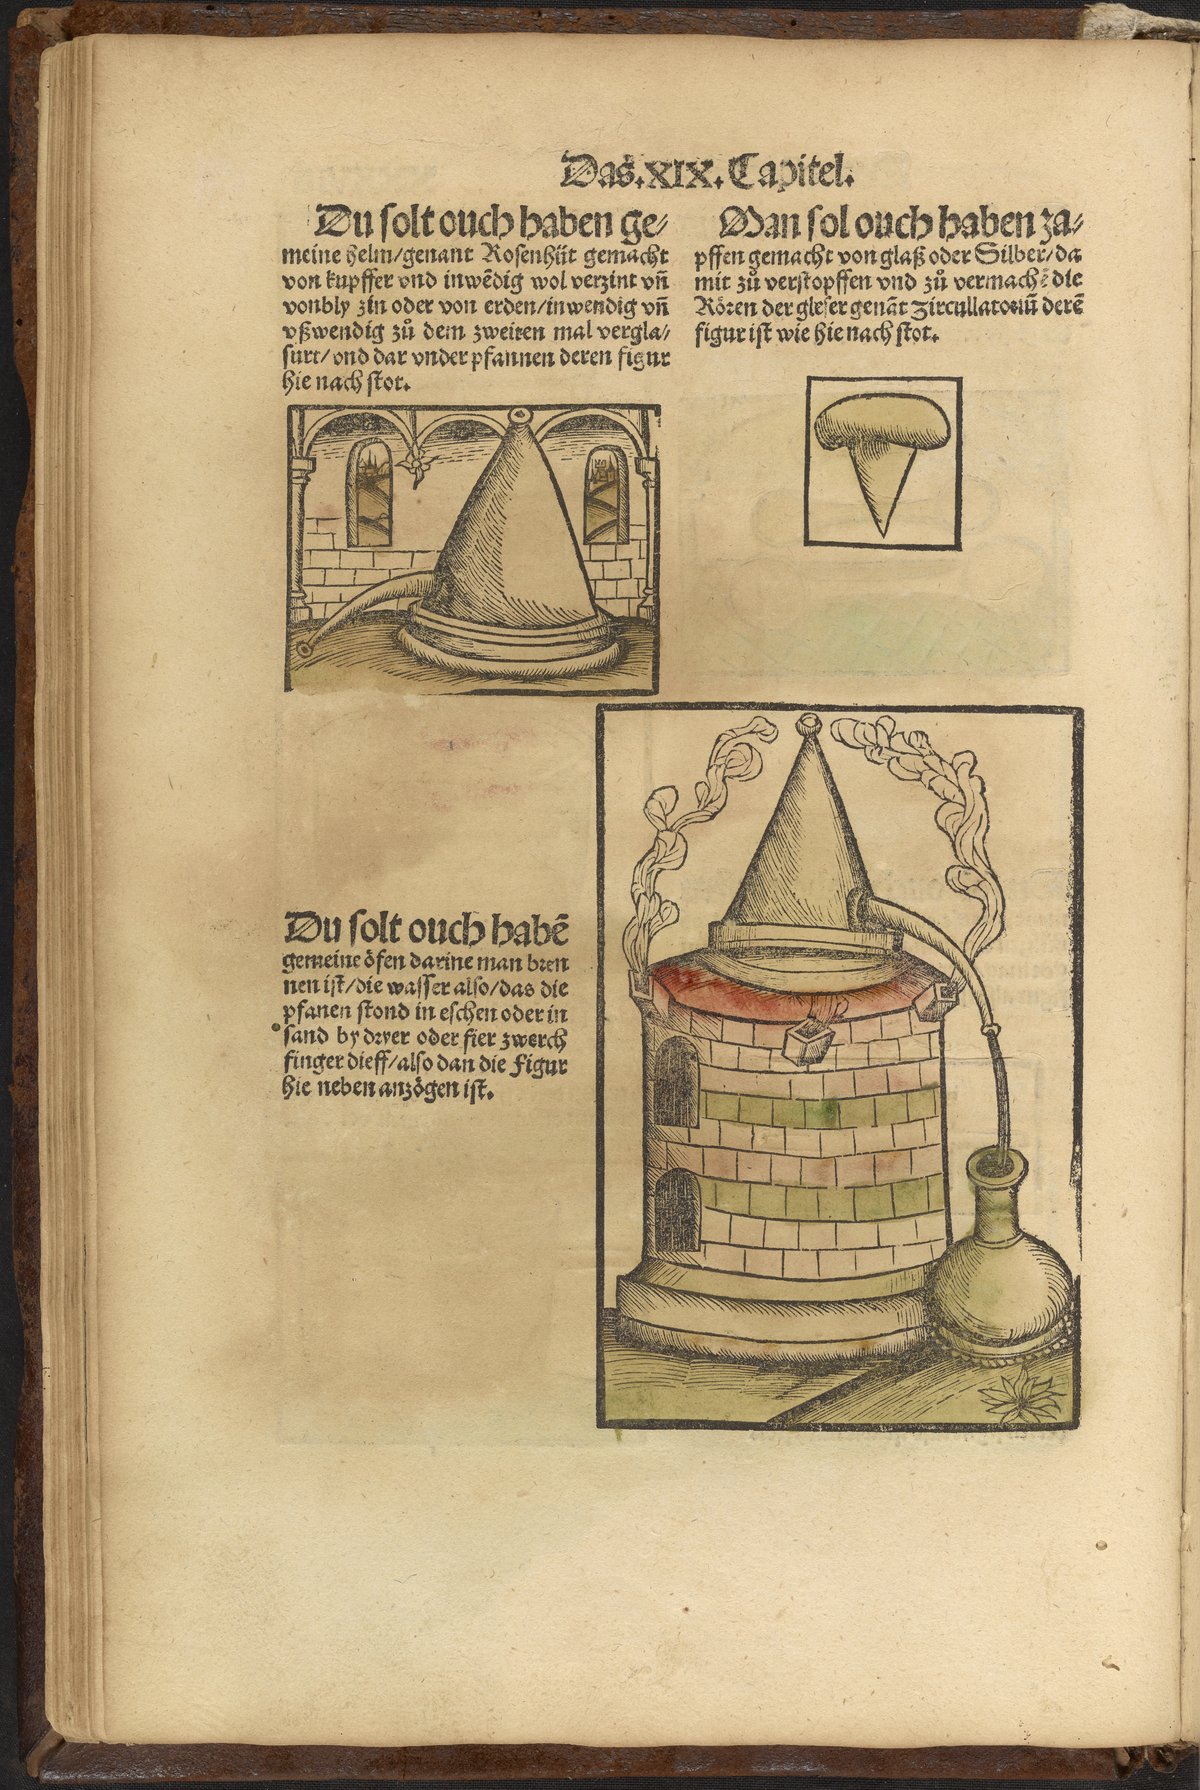 Das.XIX.Capitel.
Du solt ouch haben ge⸗
meine helm/genant Rosenhüt gemacht
von kupffer vnd inwēdig wol verzint vn̄
vonbly zin oder von erden/inwendig vn̄
vßwendig zů dem zweiten mal vergla⸗
surt/vnd dar vnder pfannen deren figur
hie nach stot.
Man sol ouch haben za⸗
pffen gemacht von glaß oder Silber/da
mit zů verstopffen vnd zů vermachē die
Rören der gleser genāt Zircullatoriū derē
figur ist wie hie nach stot.
Du solt ouch habē
gemeine öfen darine man bren
nen ist/die wasser also/das die
pfanen stond in eschen oder in
sand by dryer oder fier zwerch
finger dieff/also dan die Figur
hie neben anzögen ist.